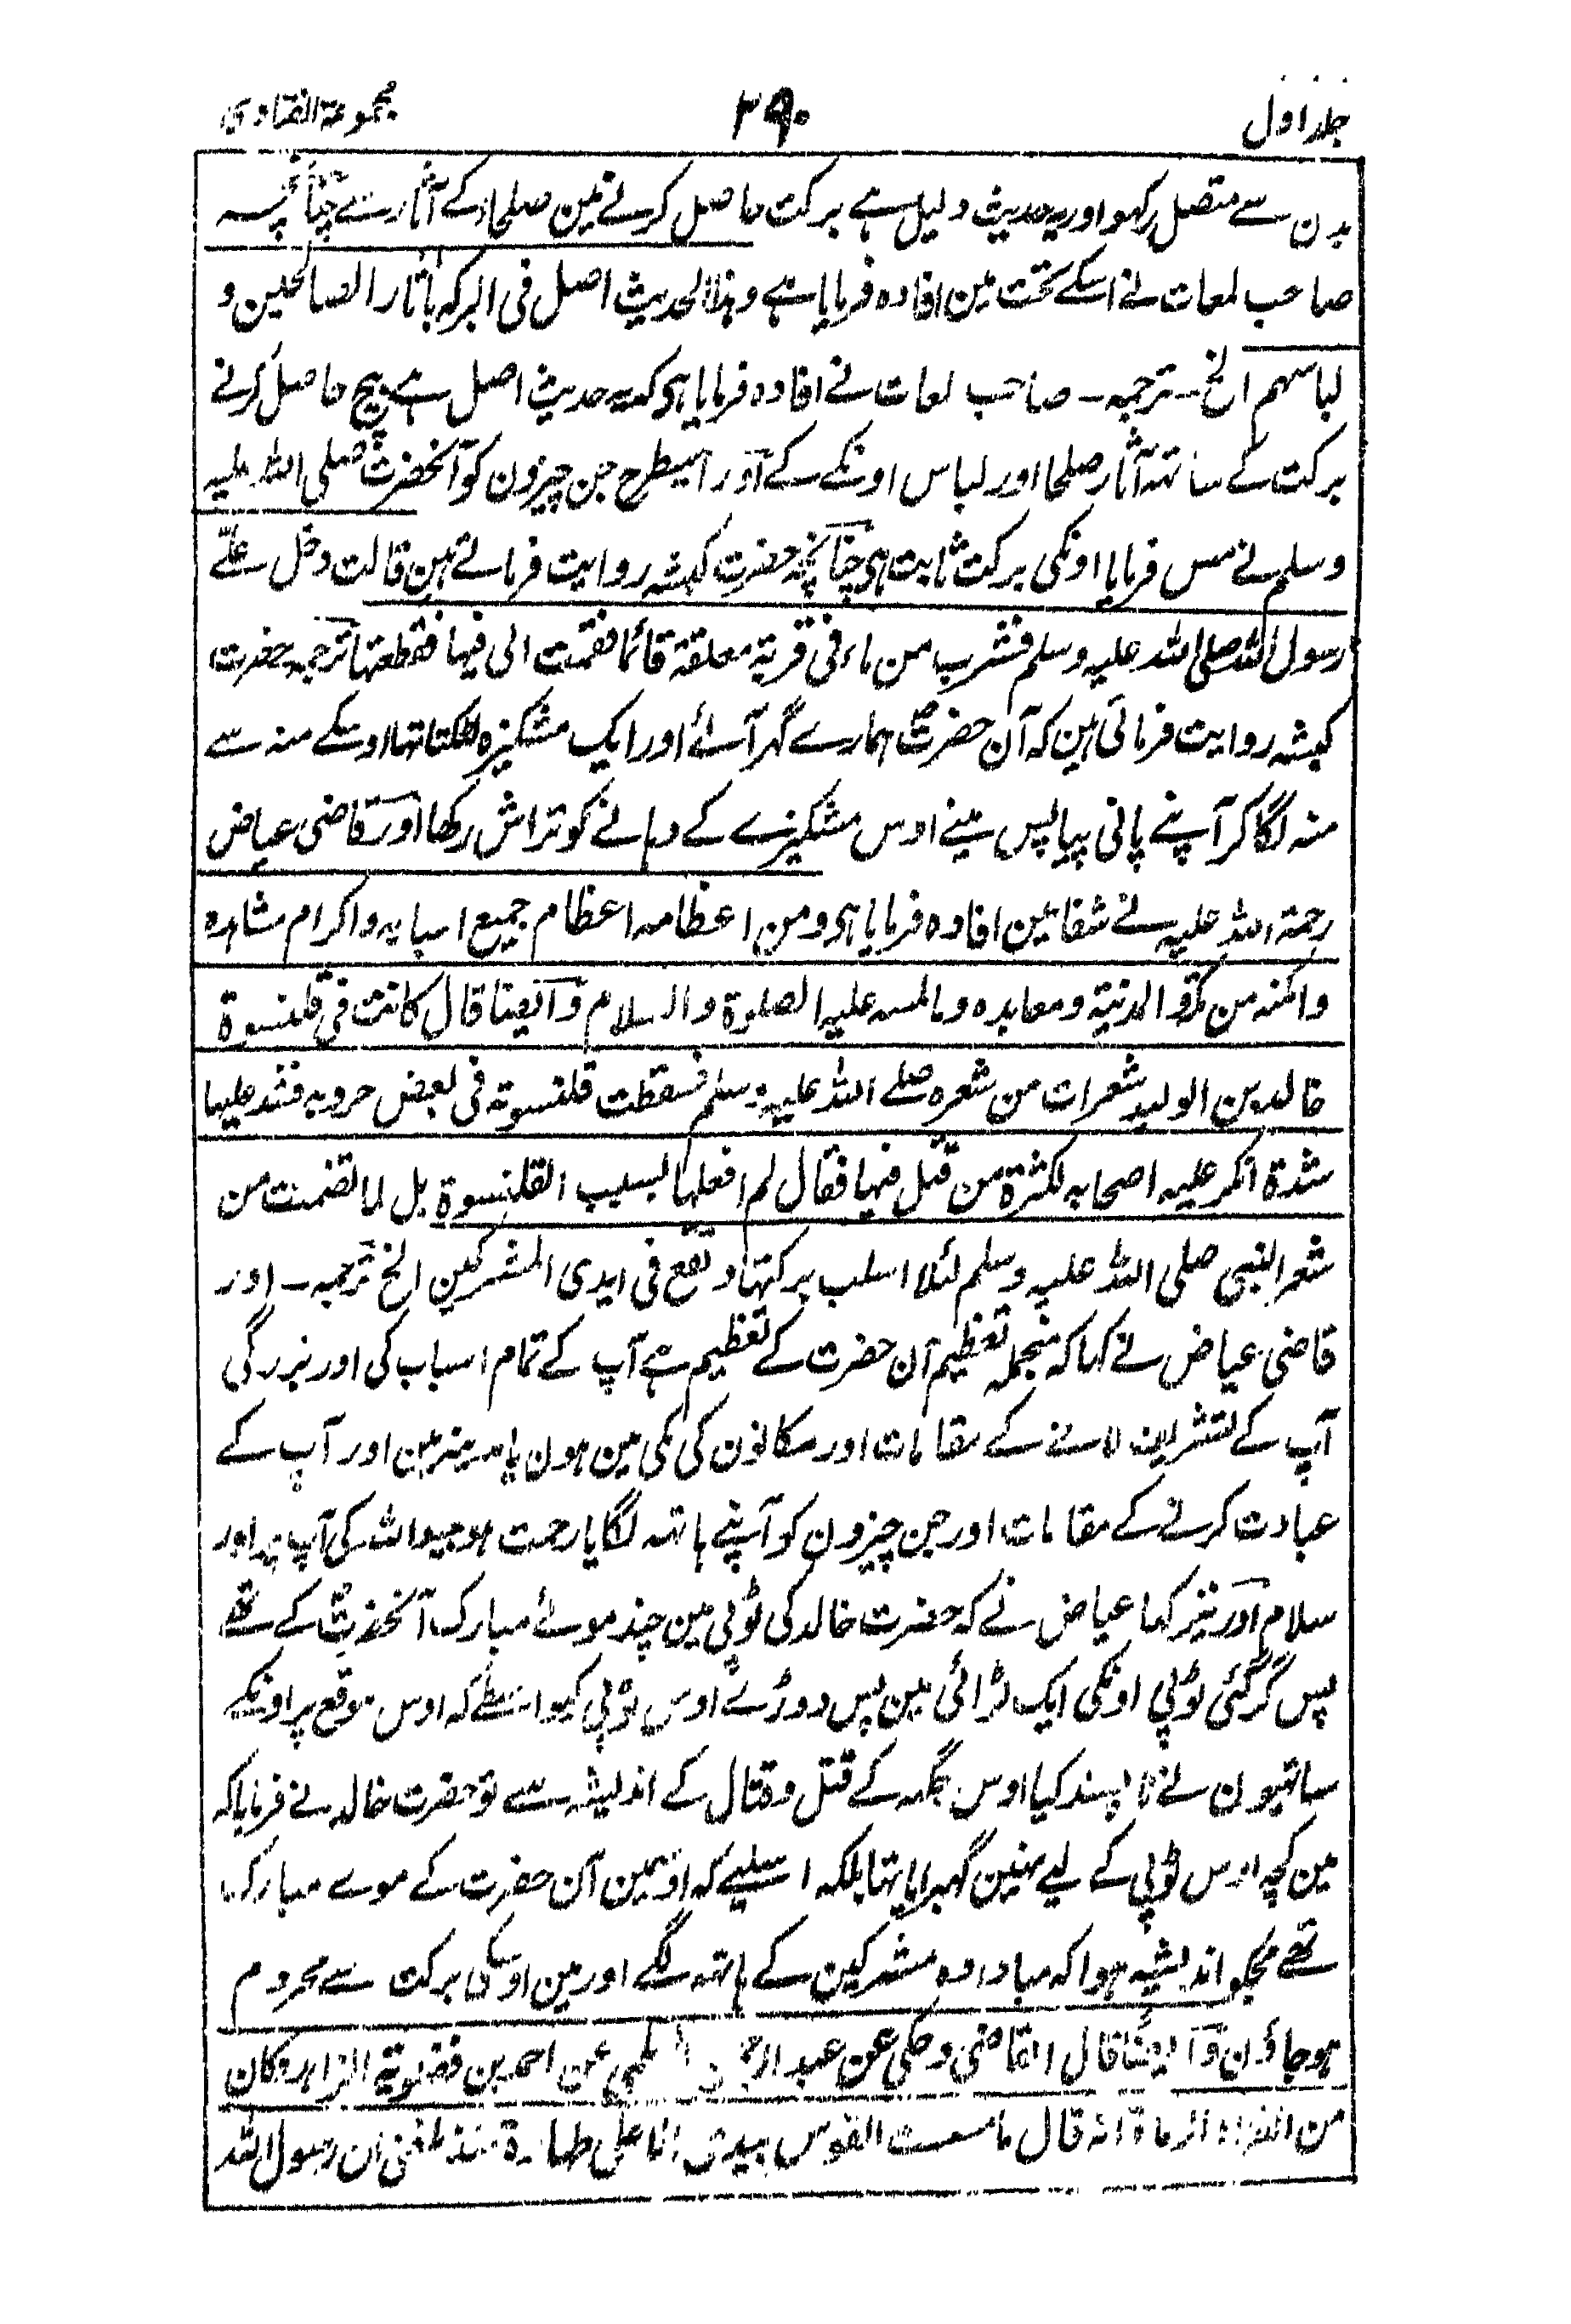 جلد اول
۲۹۰
مجموعۃ الفتاوی
بدن سے متصل رکھو اور یہ حدیث دلیل ہے برکت حاصل کرنے مین صلحاء کے آثار سے چنانچہ
صاحب لمعات نے اسکے تحت مین افادہ فرمایا ہے وہذا الحدیث اصل فی البرکہ بآثار الصالحین و
لباسہم الخ ۔ ترجمہ ۔ صاحب لمعات نے افادہ فرمایا ہی کہ یہ حدیث اصل ہے بیچ حاصل کرنے
برکت کے ساتہ آثار صلحا اور لباس اونکے کے اور اسیطرح جن چیزون کو آنحضرت صلی اللہ علیہ
وسلم نے مس فرمایا اونکی برکت ثابت ہی چنانچہ حضرت کبشہ روایت فرماتے ہین قالت دخل علے
رسول اللہ صلی اللہ علیہ وسلم فشرب من ماء فی قربۃ معلقۃ قائما فقمت الی فیہا فقطعتہا ترجمہ حضرت
کبشہ روایت فرماتی ہین کہ آن حضرتؐ ہمارے گہر آئے اور ایک مشکیزہ لٹکتا تہا اوسکے منہ سے
منہ لگا کر آپنے پانی پیا پس مینے اوس مشکیزے کے دہانے کو تراش رکھا اور قاضی عیاض
رحمۃ اللہ علیہ نے شفا مین افادہ فرمایا ہی ومن اعظامہ اعظام جمیع اسبابہ واکرام مشاہدہ
وامکنہ من مکۃ والمدینۃ ومعاہدہ ومالمسہ علیہ الصلوۃ والسلام وایضا قال کانت فی قلنسوۃ
خالد بن الولید شعرات من شعرہ صلے اللہ علیہ وسلم فسقطت قلنسوتہ فی بعض حروبہ فشد علیہا
شدۃ انکر علیہ اصحابہ لکثرۃ من قتل فیہا فقال لم افعلہا بسبب القلنسوۃ بل لما تضمنت من
شعر النبی صلی اللہ علیہ وسلم لئلا اسلب برکتہا وتقع فی ایدی المشرکین الخ ترجمہ ۔ اور
قاضی عیاض نے کہا کہ منجملہ تعظیم آن حضرت کے تعظیم ہے آپ کے تمام اسباب کی اور بزرگی
آپ کے تشریف لانے کے مقامات اور مکانون کی مکی مین ہون یا مدینہ مین اور آپ کے
عبادت کرنے کے مقامات اور جن چیزون کو آپنے ہاتہ لگایا رحمت ہوجیو اللہ کی آپ پر اور
سلام اور نیز کہا عیاض نے کہ حضرت خالد کی ٹوپی مین چند موئے مبارک آنحضرتؐ کے تھے
پس گر گئی ٹوپی اونکی ایک لڑائی مین پس دوڑے اوس ٹوپی کیواسطے کہ اوس موقع پر اونکے
ساتہیون نے ناپسند کیا اوس جگہ کے قتل وقتال کے اندیشہ سے تو حضرت خالد نے فرمایا کہ
مین کچہ اوس ٹوپی کے لیے نہین گہبرایا تہا بلکہ اسلیے کہ اوسمین آن حضرت کے موے مبارک
تھے مجکو اندیشہ ہوا کہ مبادا وہ مشرکین کے ہاتہ لگے اور مین اوسکی برکت سے محروم
ہوجاؤن وایضا قال القاضی وحکی عن عبد الرحمن السلمی عن احمد بن فضلویۃ الزاہد وکان
من الغزاۃ الرماۃ انہ قال ما مسست القوس بیدی الا علی طہارۃ منذ بلغنی ان رسول اللہ